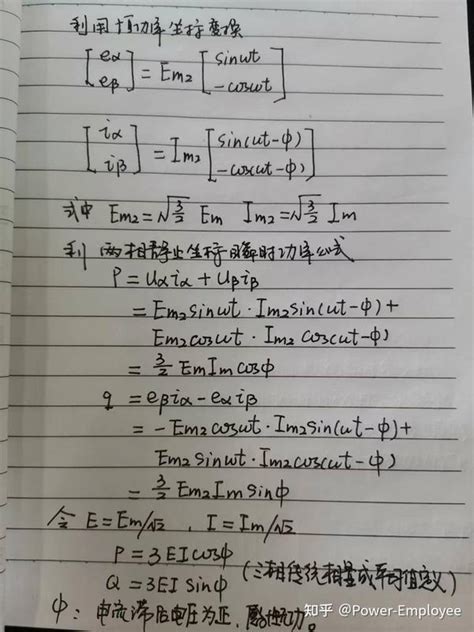 利用恒功率坐标变换
[eα
eβ] = Em2 [sinωt
-cosωt]
[iα
iβ] = Im2 [sin(ωt-φ)
-cos(ωt-φ)]
式中 Em2=√3/2 Em Im2=√3/2 Im
利 两相静止坐标 瞬时功率公式
P = uαiα + uβiβ
= Em2sinωt · Im2sin(ωt-φ)+
Em2cosωt · Im2 cos(ωt-φ)
= 3/2 EmImcosφ
q = eβiα - eαiβ
= -Em2cosωt · Im2sin(ωt-φ)+
Em2sinωt · Im2cos(ωt-φ)
= 3/2 Em2Imsinφ
令 E=Em/√2 , I=Im/√2
P = 3EIcosφ
Q = 3EI sinφ (三相传统相量或平均值定义)
φ: 电流滞后电压为正, 感性无功。
知乎 @Power-Employee